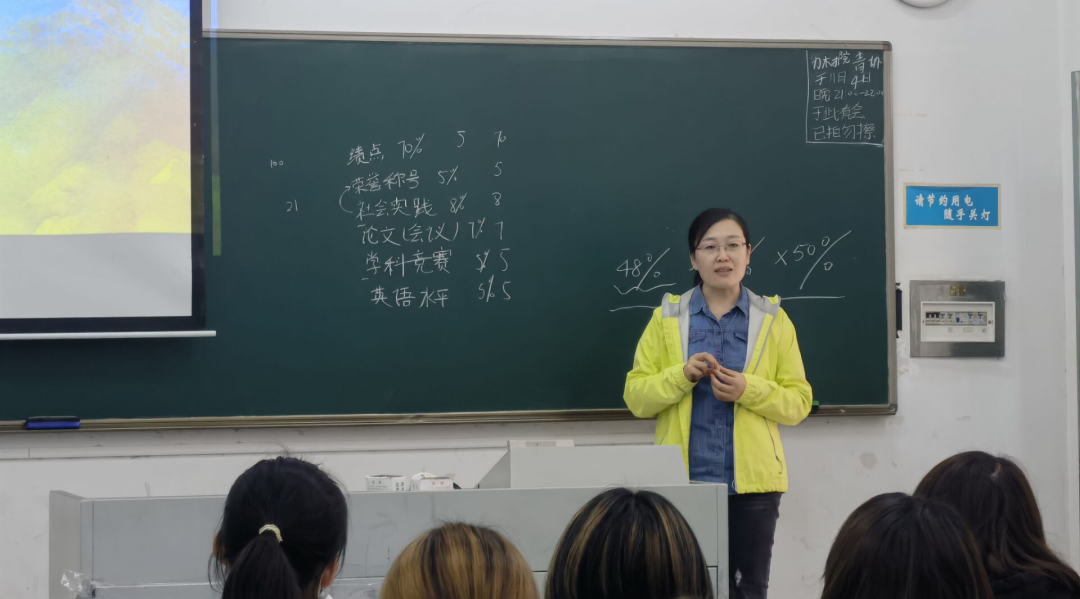 绩点 70% 5 70
100
荣誉称号 5% 5
社会实践 8% 8
21
论文(会议) 7% 7
学科竞赛 5% 5
英语水平 5% 5
48% % ×50%
于11日
晚21:00-22:00
于此有会
已拍勿擦
请节约用电
随手关灯